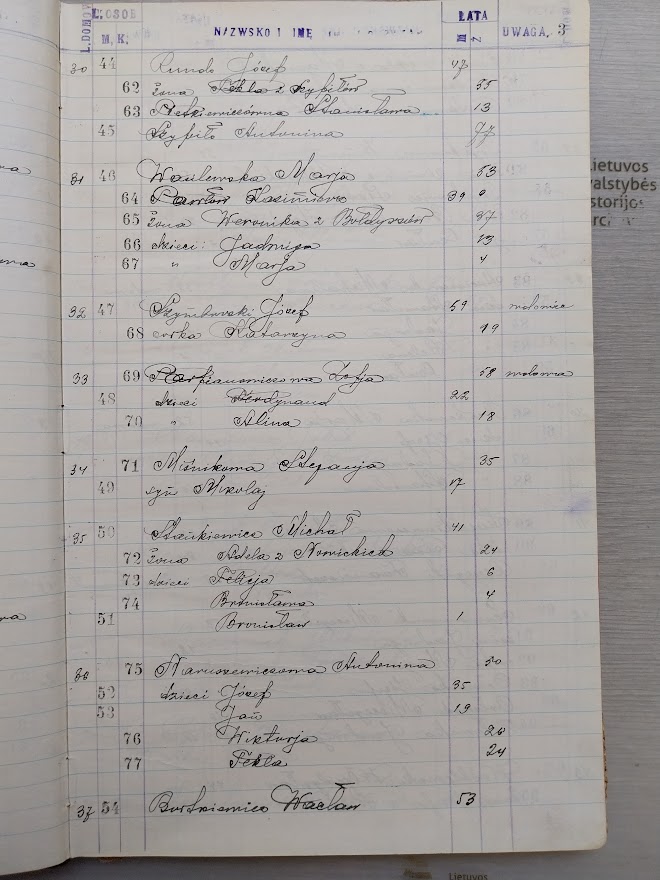 L. DOMÓW L. OSOB NAZWSKO I IMĘ LATA UWAGA. 3
M. K. M Ż
30 44 Rundo Józef 47
62 żona Tekla z Szypiłów 55
63 Pietkiewiczówna Stanisława 13
45 Szypiło Antonina 77
31 46 Wasilewska Marja 53
64 Pawłow Kazimiera 39
65 żona Weronika z Bołdyszów 37
66 dzieci: Jadwiga 13
67 " Marja 4
32 47 Szymborski Józef 59
68 córka Katarzyna 19
33 69 Zofja 58
48 dzieci Ferdynand 22
70 " Alina 18
34 71 Miśnikowa Stefanja 35
49 syn Mikołaj 17
35 50 Stankiewicz Michał 41
72 żona Adela z Nowickich 24
73 dzieci Felicja 6
74 Bronisława 4
51 Bronisław 1
36 75 Naruszewiczowa Antonina 50
52 dzieci Józef 35
53 Jan 19
76 Wiktorja 26
77 Tekla 24
37 54 Wacław 53
Lietuvos
valstybės
istorijos
Lietuvos